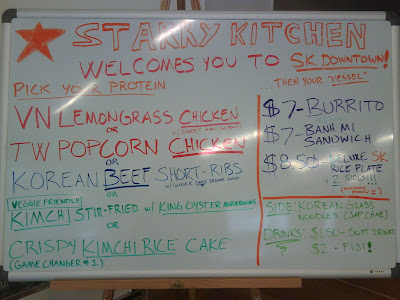 STARRY KITCHEN
WELCOMES YOU TO SK DOWNTOWN!
PICK YOUR PROTEIN
VN LEMONGRASS CHICKEN
OR
TW POPCORN CHICKEN
OR
KOREAN BEEF SHORT-RIBS
OR
VEGGIE FRIENDLY
KIMCHI STIR-FRIED W/ KING OYSTER MUSHROOMS
OR
CRISPY KIMCHI RICE CAKE
(GAME CHANGER #1)
...THEN YOUR "VESSEL"
$7-BURRITO
$7-BANH MI
SANDWICH
$8.50-DELUXE SK
RICE PLATE
SIDE: KOREAN GLASS
NOODLES (JAP CHAE)
DRINKS: $1.50-SOFT DRINKS
$2-FIJI!